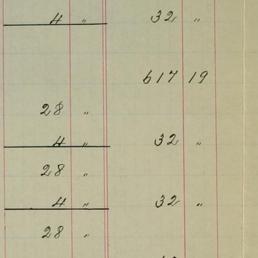 4 " 32 "
617 19
28 "
4 " 32 "
28 "
4 " 32 "
28 "